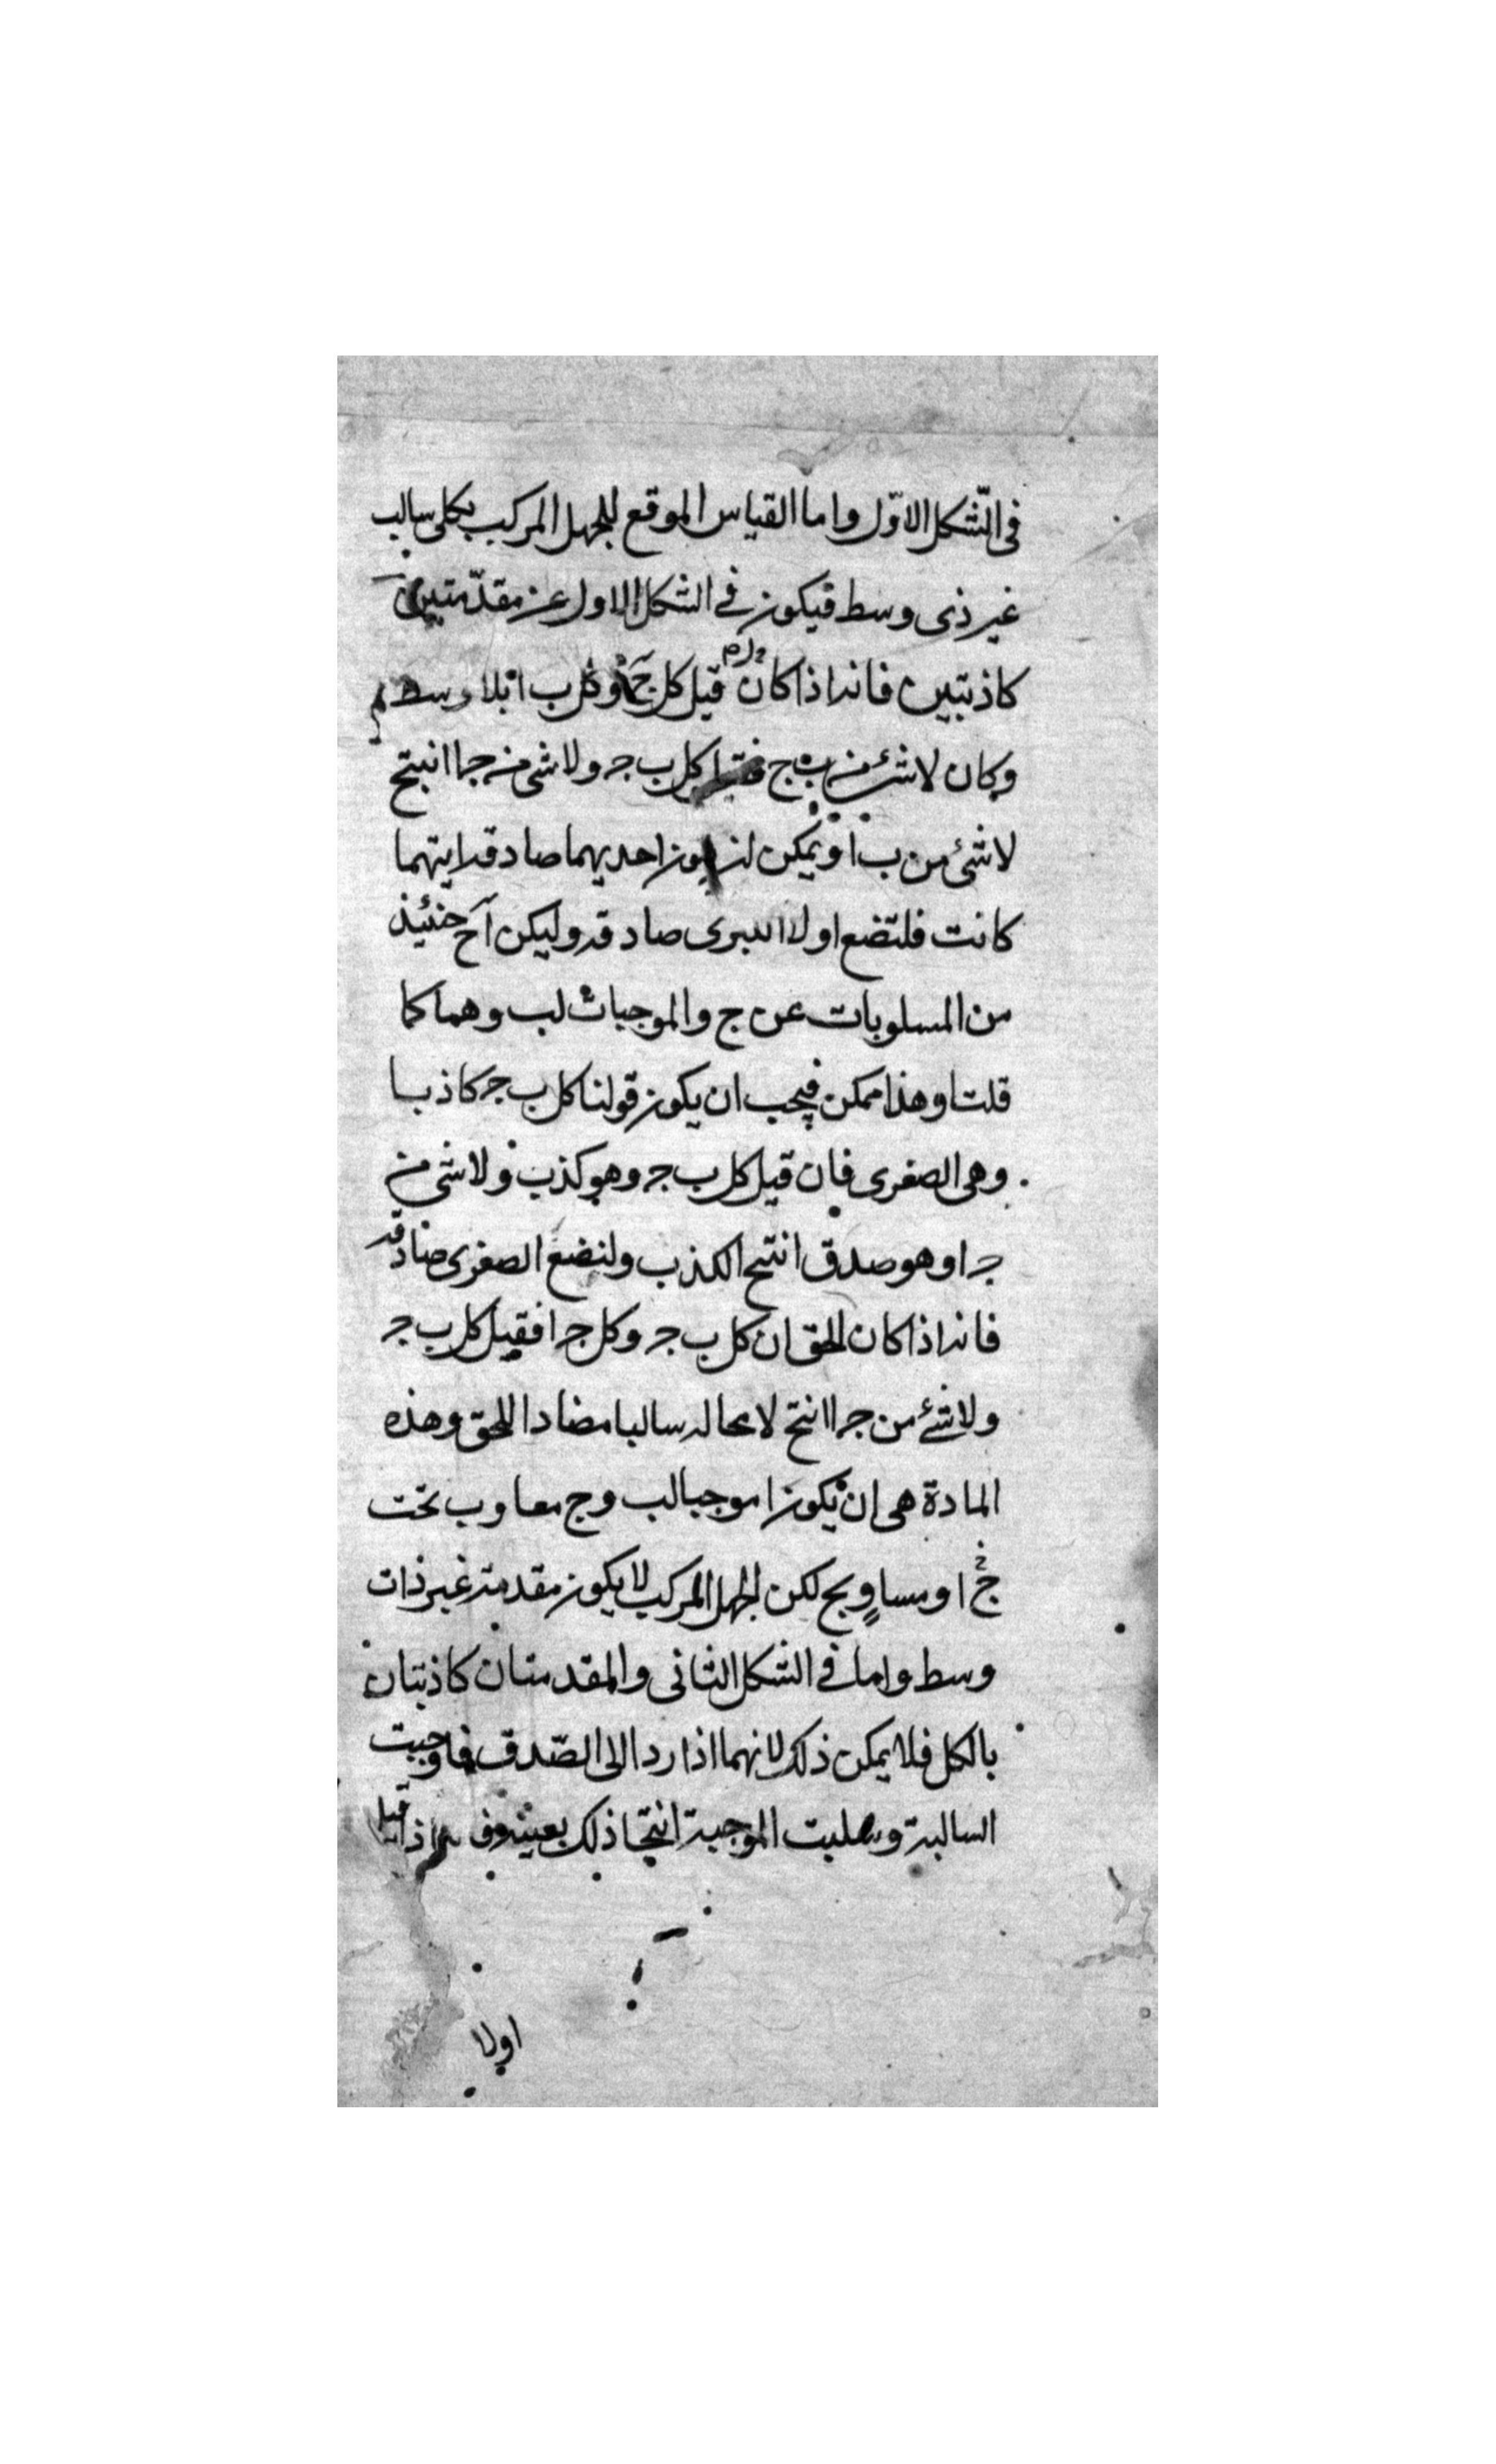 فى الشّكل الاوّل واما القياس الموقع للجهل المركب بكلى سالب
غير ذى وسط فيكون فى الشكل الاول عن مقدّمتين
كاذبتين فانه اذا كان قيل كل ج وكل ب ا بلا وسط
وكان لا شئ من ب ج كل ب ج ولا شئ من ج ا انتج
لا شئ من ب ا ويمكن ان يكون احديهما صادقه ايتهما
كانت فلتضع اولا الكبرى صادقه وليكن آ ح حنئيذ
من المسلوبات عن ج والموجبات لب وهما كما
قلنا وهذا ممكن فيجب ان يكون قولنا كل ب ج كاذبا
وهى الصغرى فان قيل كل ب ج وهو كذب ولا شئ من
ج ا وهو صدق انتج الكذب ولنضع الصغرى صادقه
فانه اذا كان الحق ان كل ب ج وكل ج ا فقيل كل ب ج
ولا شئ من ج ا انتج لا محاله سالبا مضادا للحق وهذه
المادة هى ان يكون ا موجبا لب وج معا وب تحت
ج او مساوٍ بج لكن الجهل المركب لا يكون مقدمته غير ذات
وسط واما فى الشكل الثانى والمقدمتان كاذبتان
بالكل فلا يمكن ذلك لانهما اذا ردا الى الصّدق فاوجبت
السالبة وسلبت الموجبة انتجا ذلك بعينه
اولا